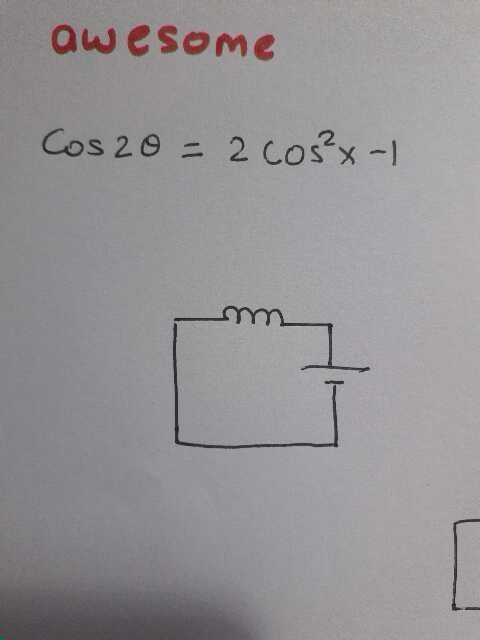 awesome
Cos2θ = 2 Cos²x -1